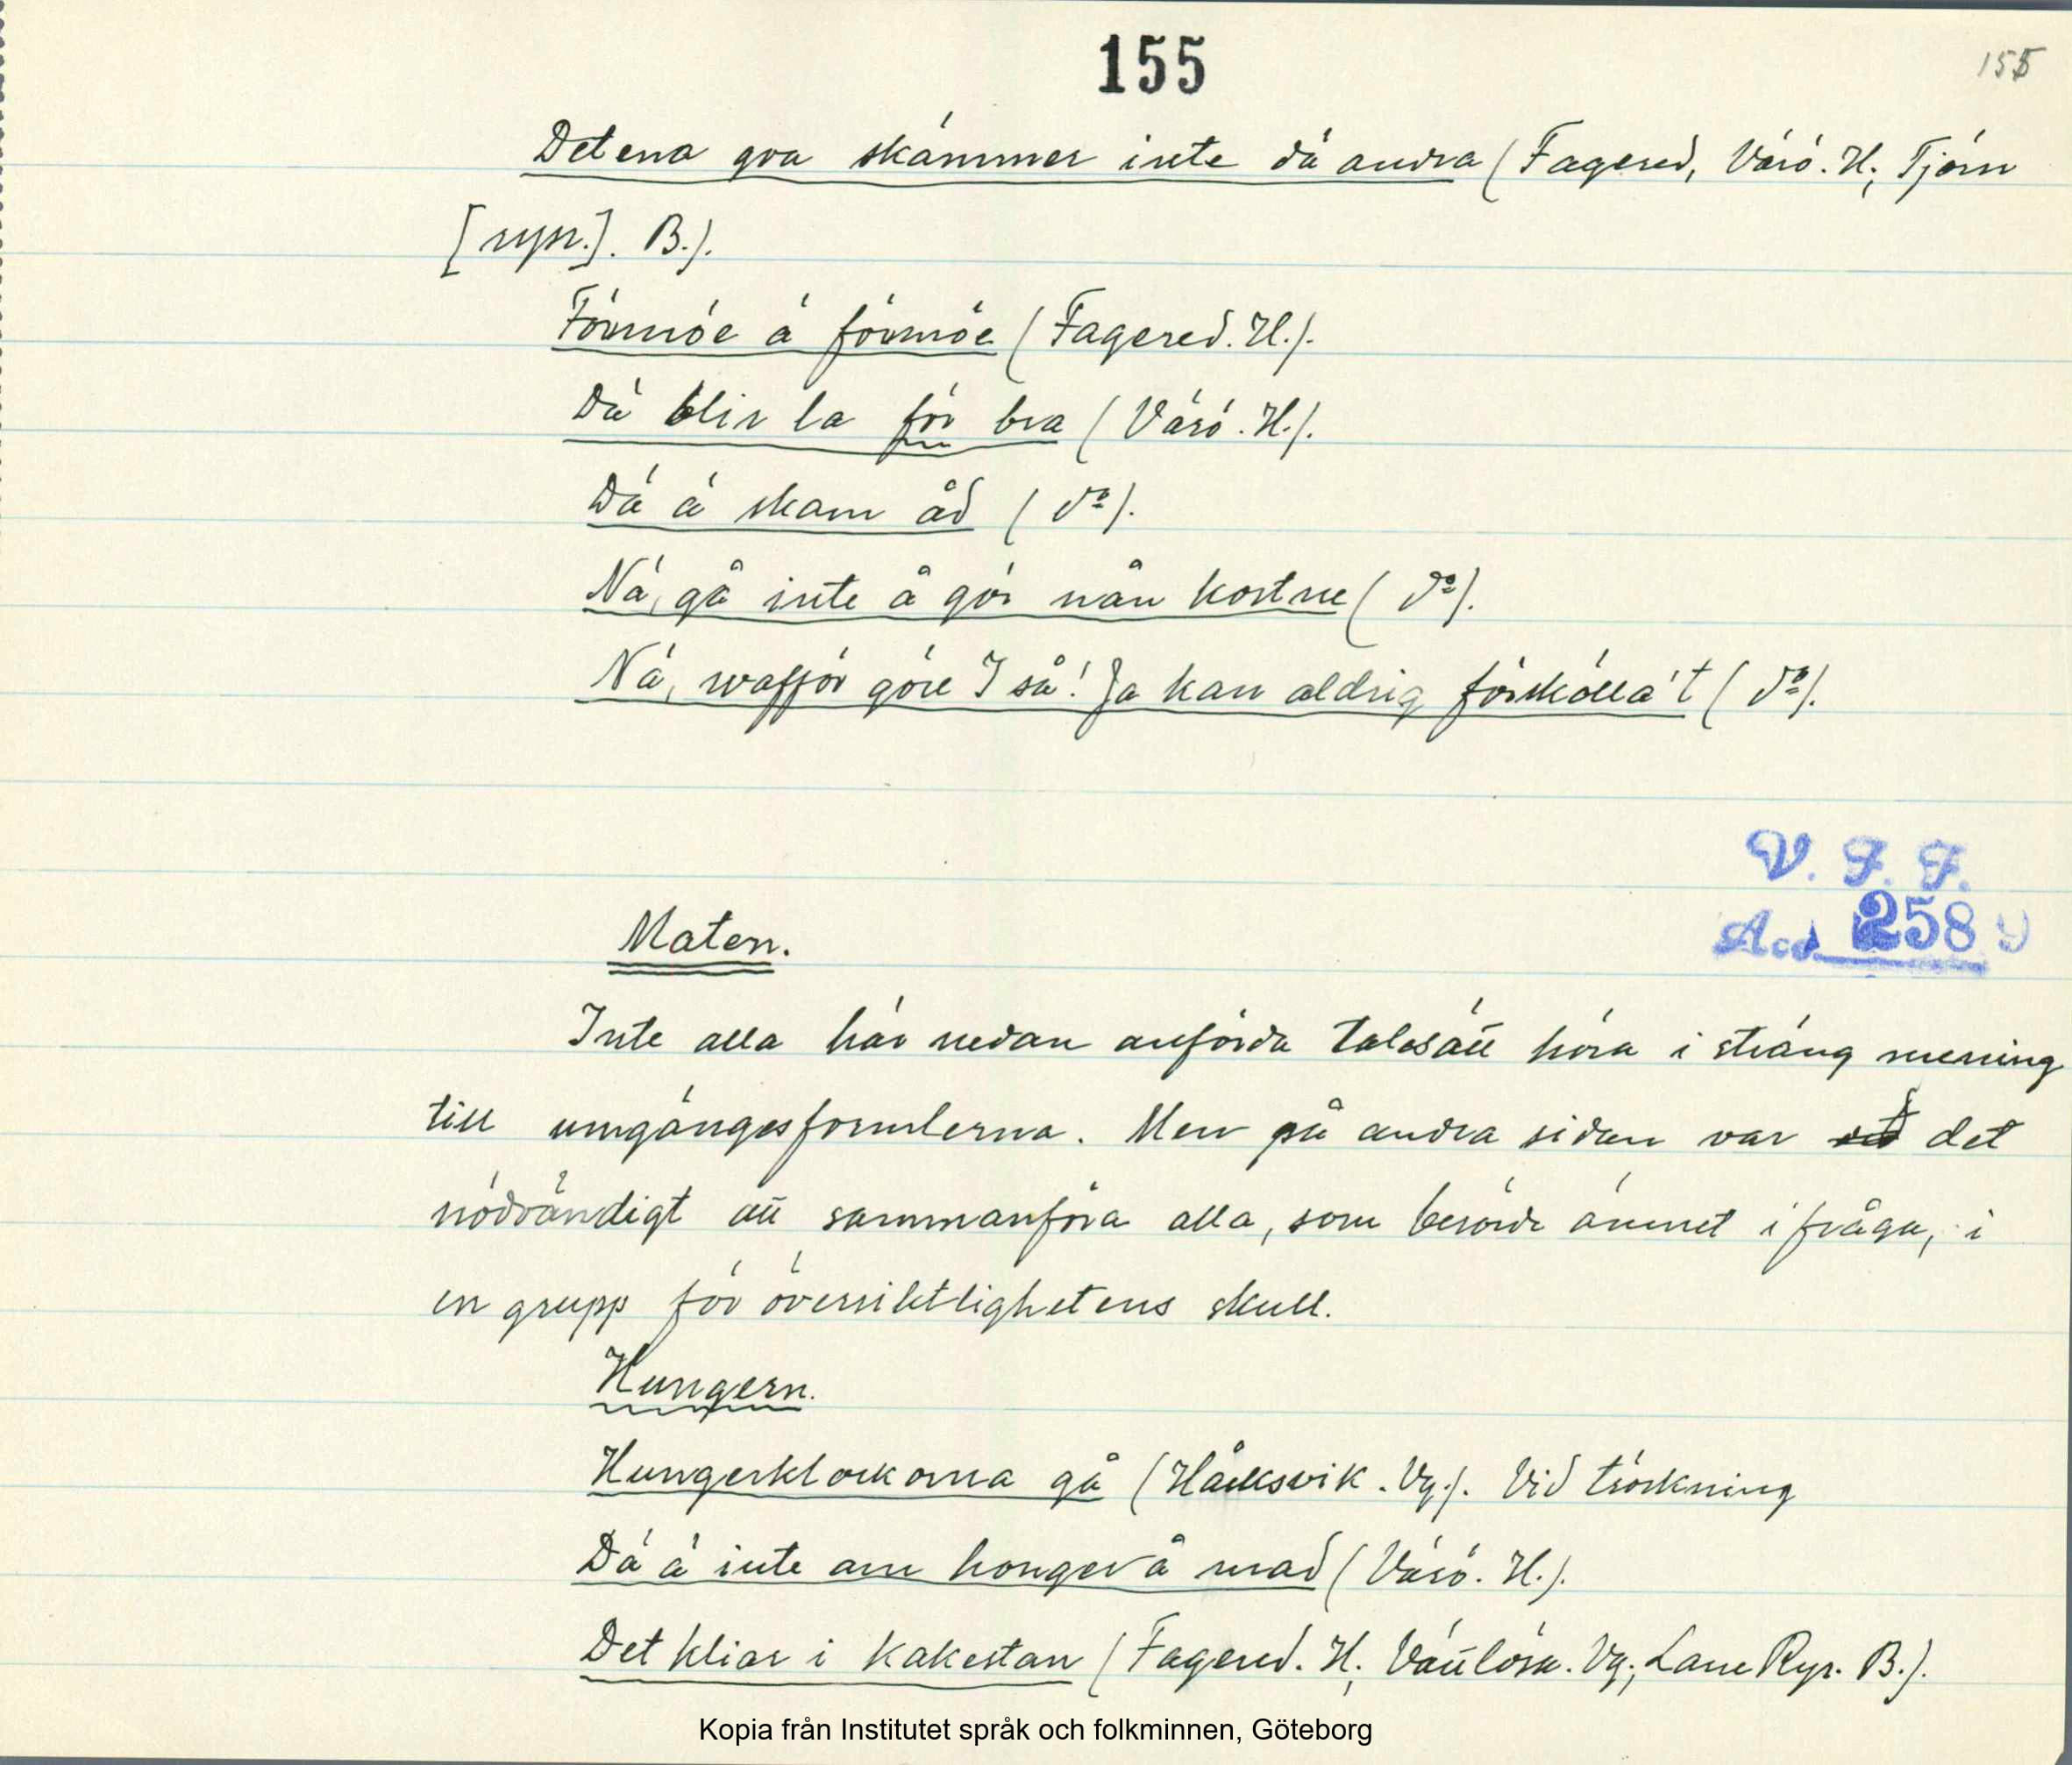 155
155
Det ena goa skämmer inte dä andra (Fagered, Värö. H; Tjörn
[syn.]. B.).
Förmöe ä förmöe (Fagered. H.).
Dä blir la för bra (Värö. H.).
Dä ä skam åd (do).
Nä, gå inte å gör nån kostne (do).
Nä, wafför göre I så! Ja kan aldrig förskölla't (do).
V. F. F.
Acc. 258 9
Maten.
Inte alla här nedan anförda talesätt höra i sträng mening
till umgängesformlerna. Men på andra sidan var det
nödvändigt att sammanföra alla, som berörde ämnet i fråga, i
en grupp för översiktlighetens skull.
Hungern.
Hungerklockorna gå (Hållsvik. Vg.). Vid tröskning
Dä ä inte am honger å mad (Värö. H.).
Det kliar i kakestan (Fagered. H; Vättlösa. Vg; Lane Ryr. B.).
Kopia från Institutet språk och folkminnen, Göteborg